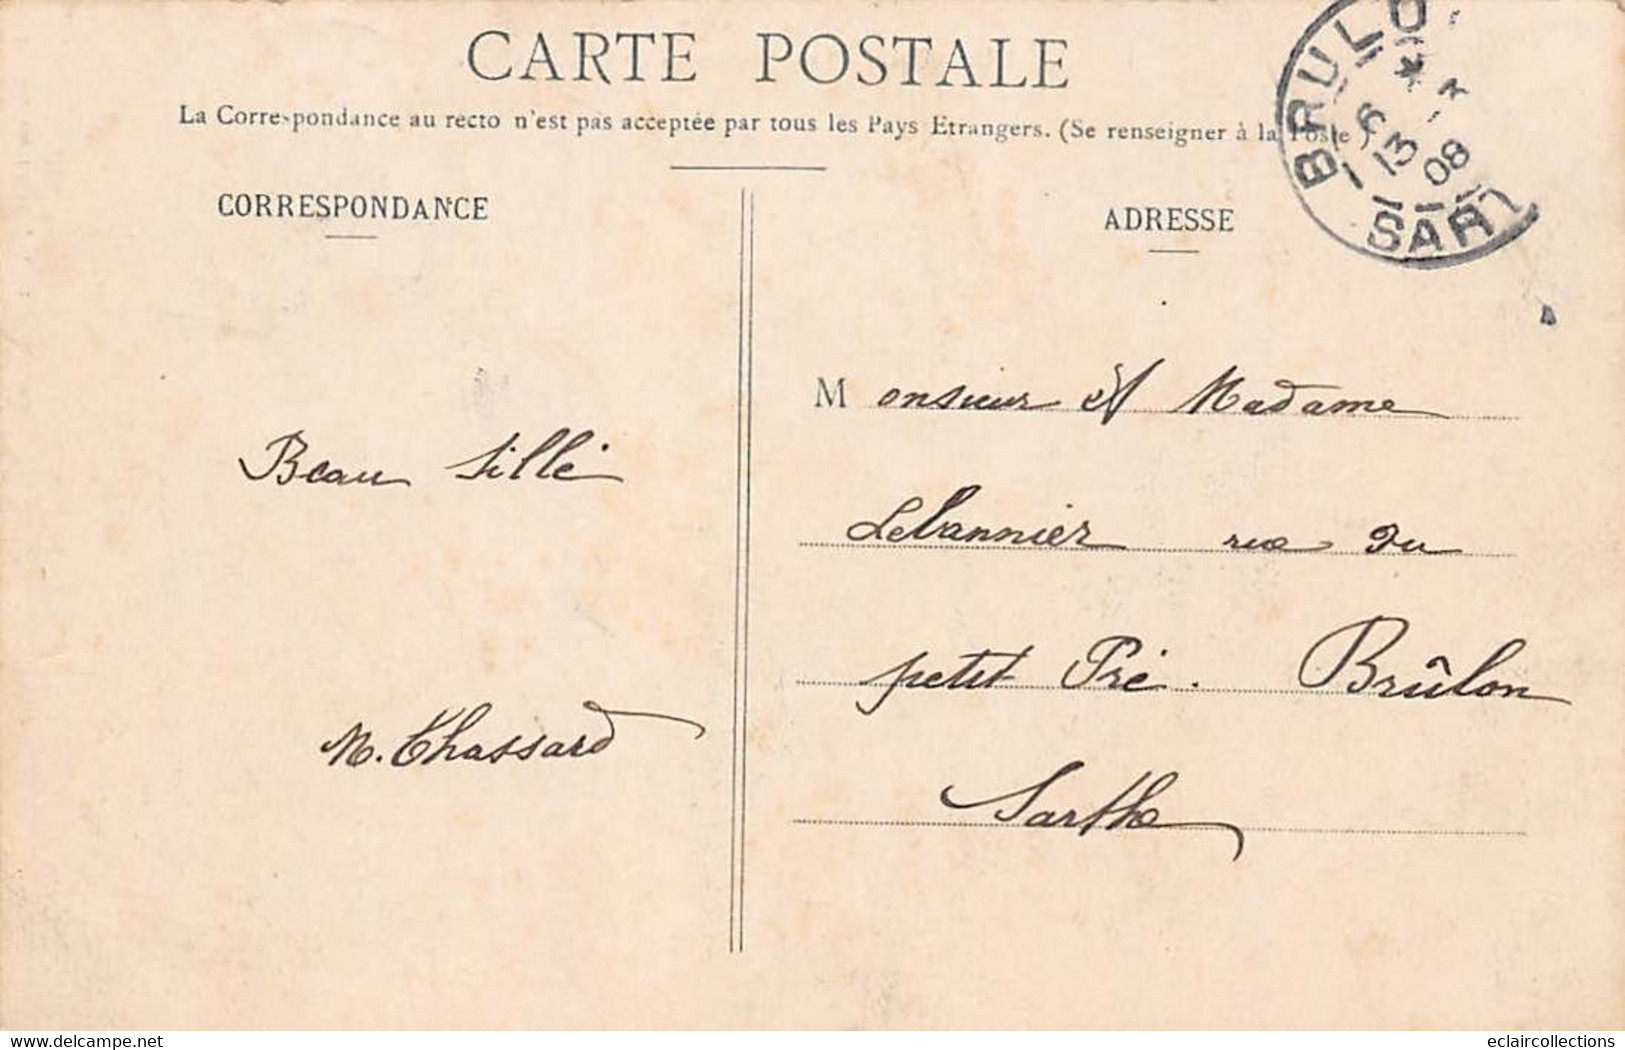 CARTE POSTALE
La Correspondance au recto n'est pas acceptée par tous les Pays Etrangers. (Se renseigner à la Poste)
CORRESPONDANCE
ADRESSE
BRULO
6 * 3
13 08
SART
Monsieur et Madame
Beau Sillé
Lebannier rue du
petit Pré. Brûlon
M. Chassard
Sarthe
www.delcampe.net
eclaircollections